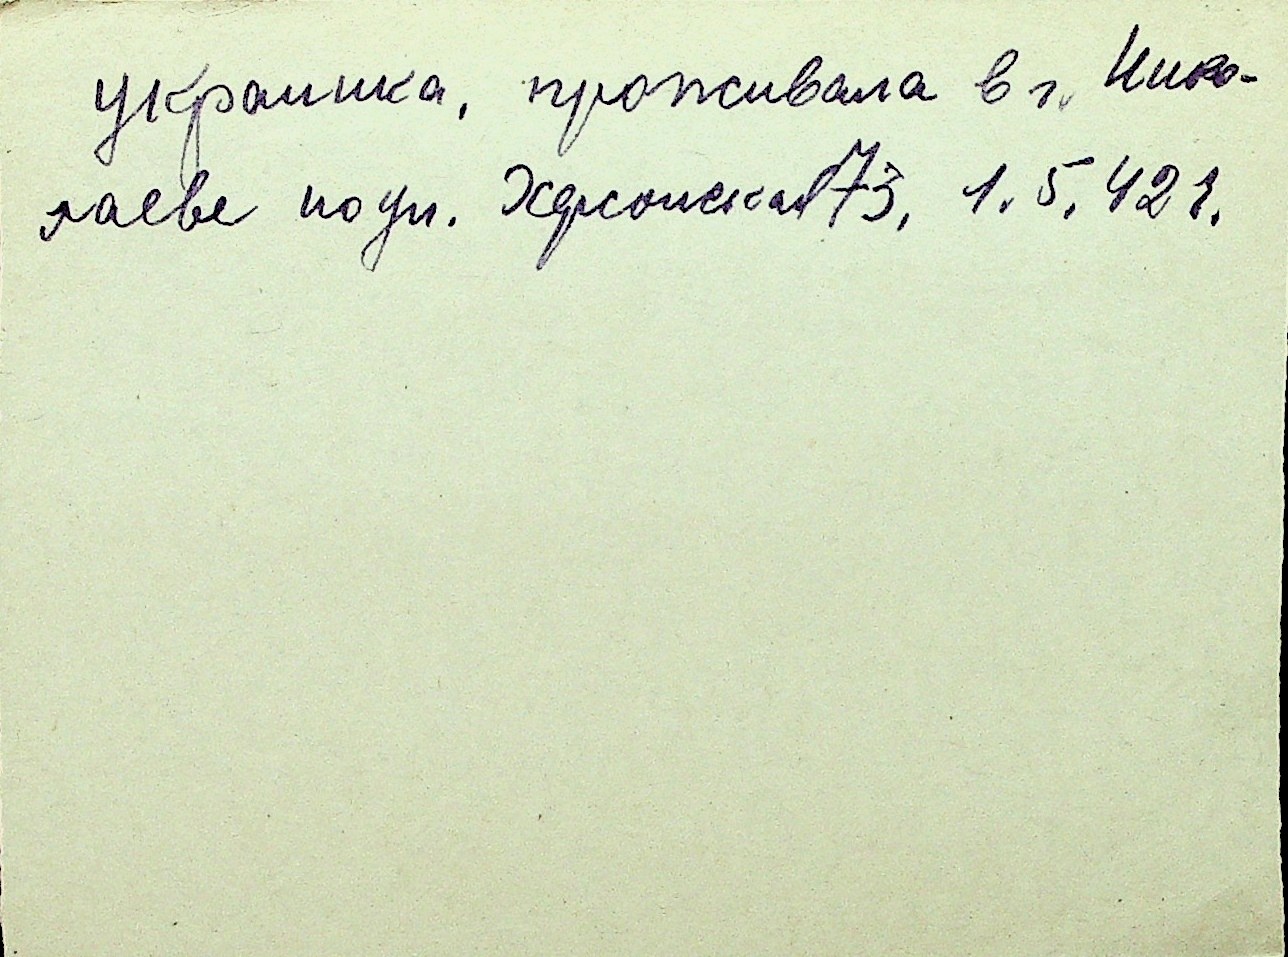 украинка, проживала в г. Нико-
лаеве по ул. Херсонская 73, 1.5.42 г.